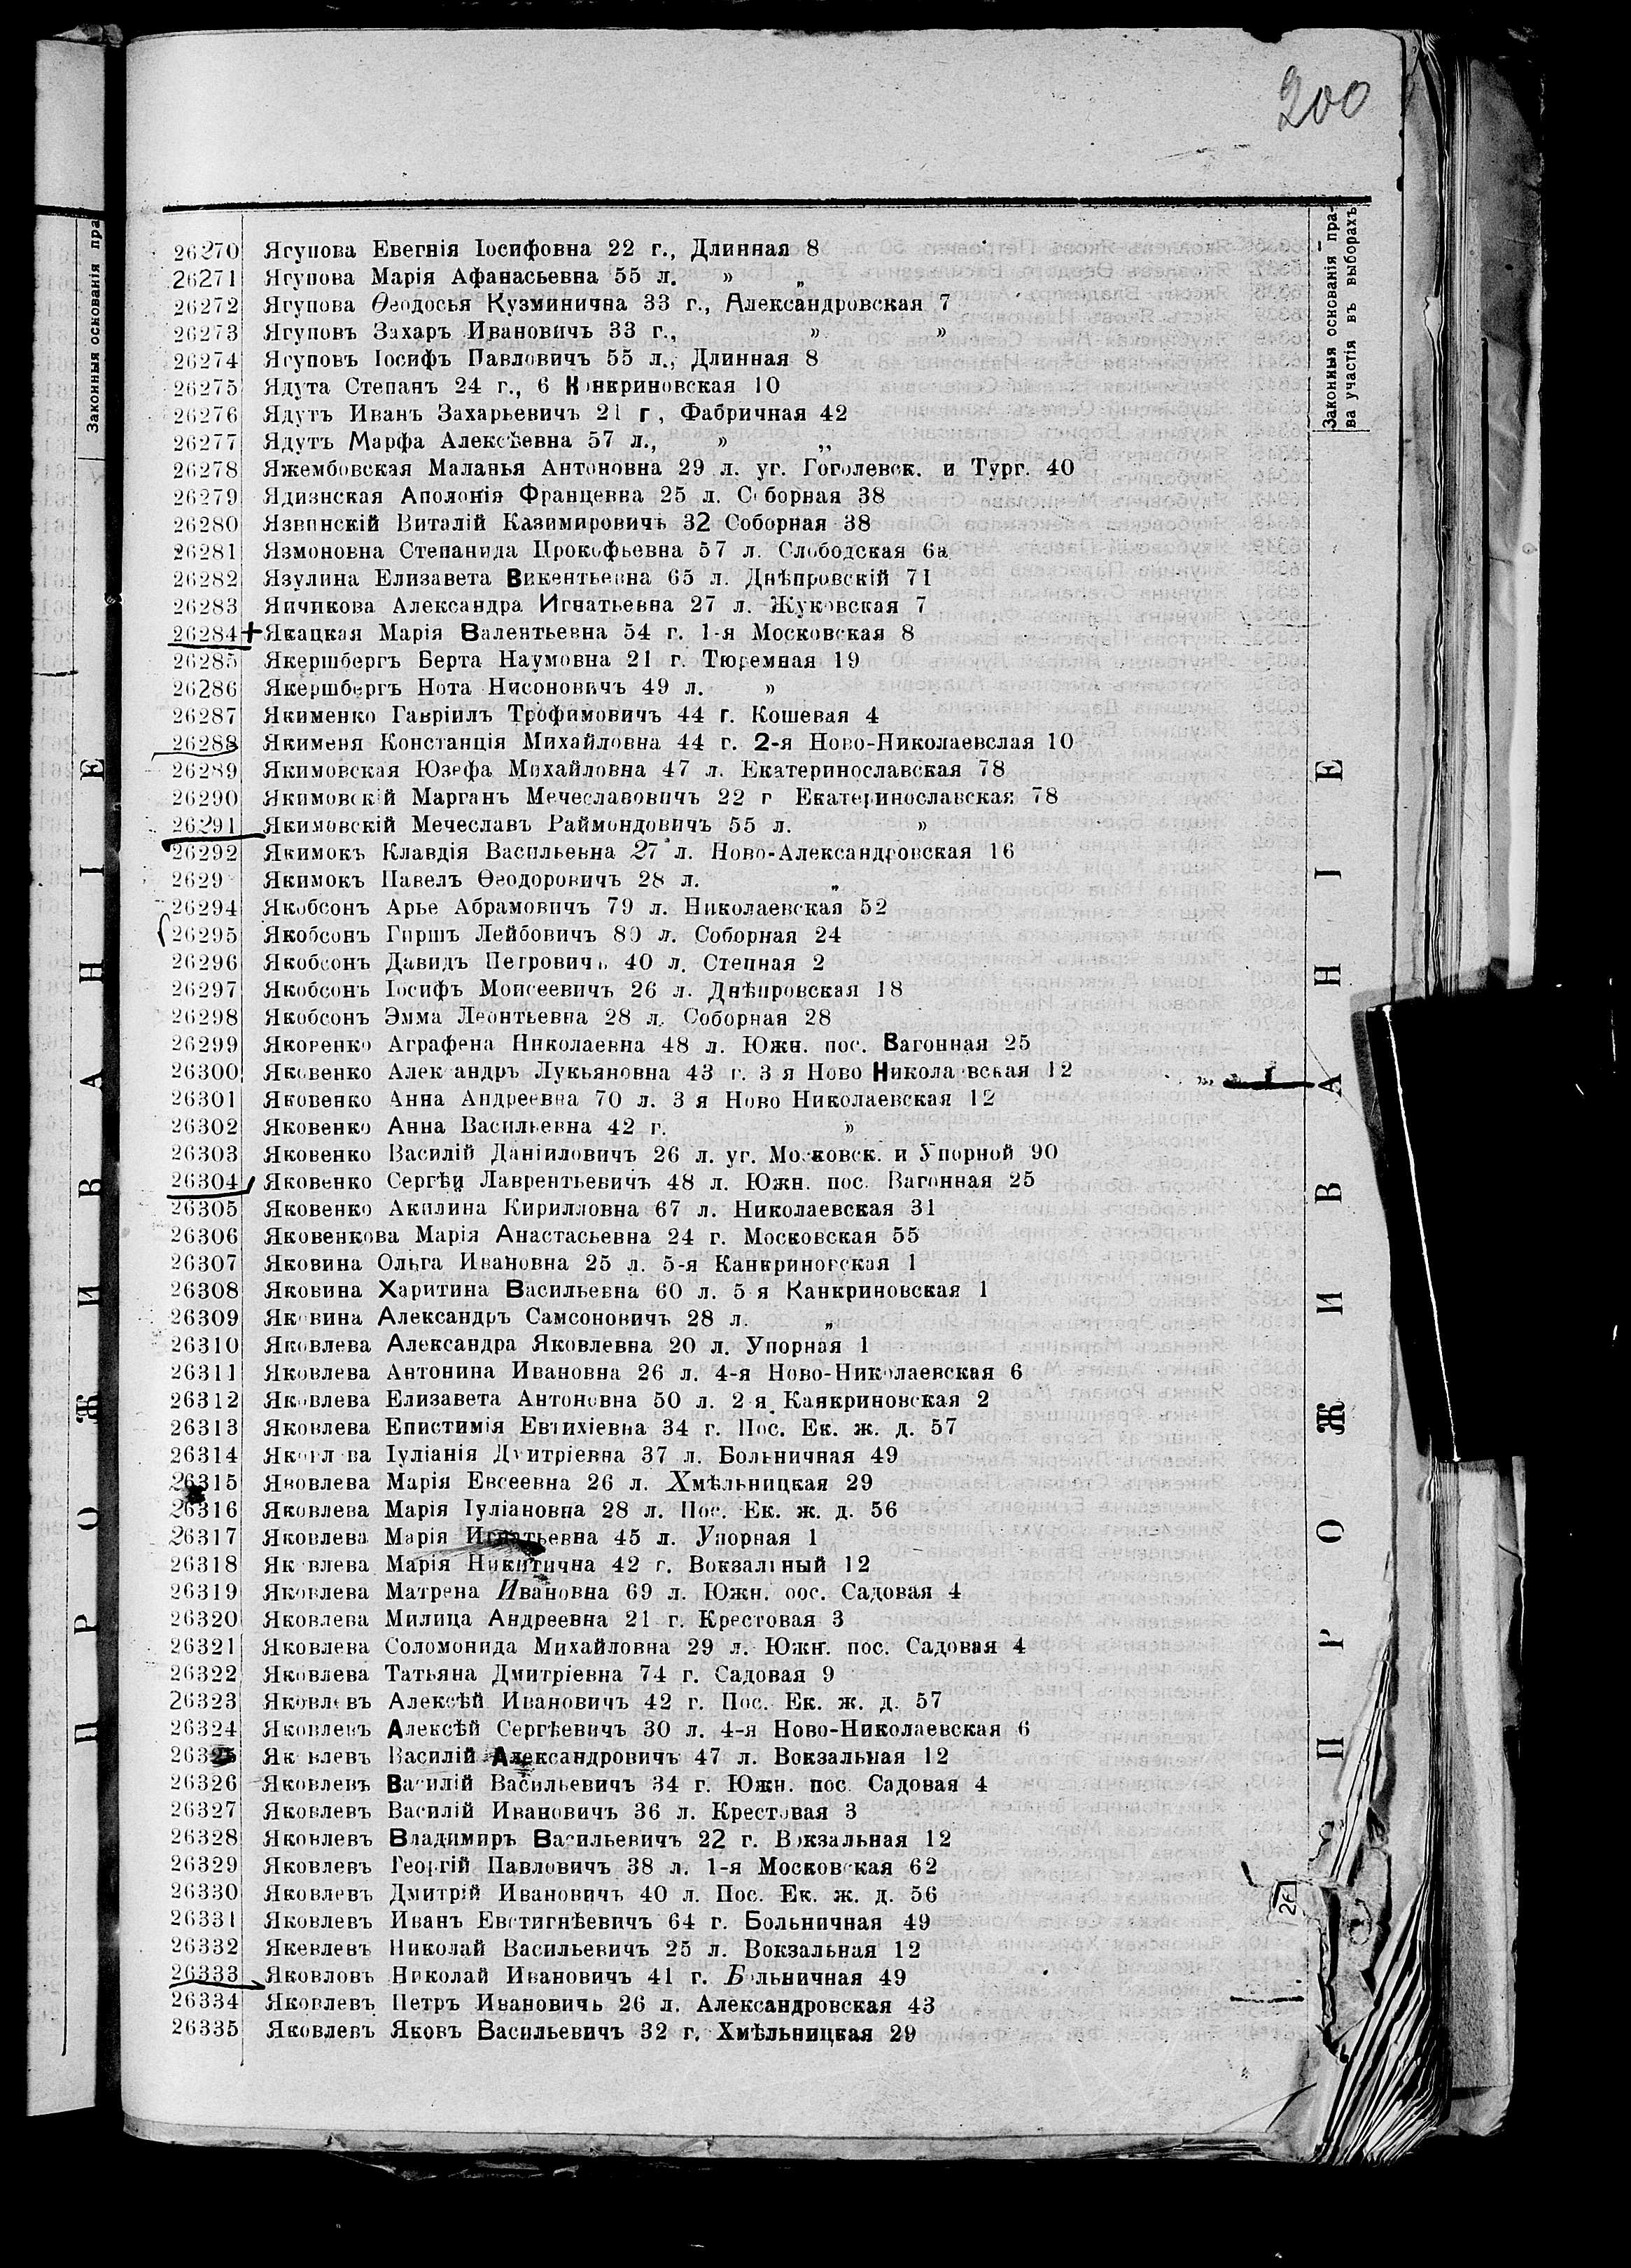 200
Законныя основанія пра-
ва участія въ выборахъ
26270 Ягупова Евегнія Іосифовна 22 г., Длинная 8
26271 Ягупова Марія Афанасьевна 55 л. » „
26272 Ягупова Ѳеодосья Кузминична 33 г., Александровская 7
26273 Ягуповъ Захаръ Ивановичъ 33 г., » »
26274 Ягуповъ Іосифъ Павловичъ 55 л., Длинная 8
26275 Ядута Степанъ 24 г., 6 Конкриновская 10
26276 Ядутъ Иванъ Захарьевичъ 21 г, Фабричная 42
26277 Ядутъ Марфа Алексѣевна 57 л., » „
26278 Яжембовская Маланья Антоновна 29 л. уг. Гоголевск. и Тург. 40
26279 Ядизнская Аполонія Францевна 25 л. Соборная 38
26280 Язвинскій Виталій Казимировичъ 32 Соборная 38
26281 Язмоновна Степанида Прокофьевна 57 л. Слободская 6а
26282 Язулина Елизавета Викентьевна 65 л. Днѣпровскій 71
26283 Яичикова Александра Игнатьевна 27 л. Жуковская 7
26284 Якацкая Марія Валентьевна 54 г. 1-я Московская 8
26285 Якершбергъ Берта Наумовна 21 г. Тюремная 19
26286 Якершбергъ Нота Нисоновичъ 49 л. »
26287 Якименко Гавріилъ Трофимовичъ 44 г. Кошевая 4
26288 Якименя Констанція Михайловна 44 г. 2-я Ново-Николаевслая 10
26289 Якимовская Юзефа Михайловна 47 л. Екатеринославская 78
26290 Якимовскій Марганъ Мечеславовичъ 22 г Екатеринославская 78
26291 Якимовскій Мечеславъ Раймондовичъ 55 л. »
26292 Якимокъ Клавдія Васильевна 27 л. Ново-Александровская 16
2629 Якимокъ Павелъ Ѳеодоровичъ 28 л. „
26294 Якобсонъ Арье Абрамовичъ 79 л. Николаевская 52
26295 Якобсонъ Гиршъ Лейбовичъ 80 л. Соборная 24
26296 Якобсонъ Давидъ Петровичъ 40 л. Степная 2
26297 Якобсонъ Іосифъ Моисеевичъ 26 л. Днѣпровская 18
26298 Якобсонъ Эмма Леонтьевна 28 л. Соборная 28
26299 Якоренко Аграфена Николаевна 48 л. Южн. пос. Вагонная 25
26300 Яковенко Алек андръ Лукьяновна 43 г. 3 я Ново Никола вская 12
26301 Яковенко Анна Андреевна 70 л. 3 я Ново Николаевская 12
26302 Яковенко Анна Васильевна 42 г. »
26303 Яковенко Василій Даніиловичъ 26 л. уг. Московск. и Упорной 90
26304 Яковенко Сергѣи Лаврентьевичъ 48 л. Южн. пос. Вагонная 25
26305 Яковенко Акилина Кирилловна 67 л. Николаевская 31
26306 Яковенкова Марія Анастасьевна 24 г. Московская 55
26307 Яковина Ольга Ивановна 25 л. 5-я Канкриновская 1
26308 Яковина Харитина Васильевна 60 л. 5 я Канкриновская 1
26309 Яковина Александръ Самсоновичъ 28 л. „
26310 Яковлева Александра Яковлевна 20 л. Упорная 1
26311 Яковлева Антонина Ивановна 26 л. 4-я Ново-Николаевская 6
26312 Яковлева Елизавета Антоновна 50 л. 2 я Каякриновская 2
26313 Яковлева Епистимія Евтихіевна 34 г. Пос. Ек. ж. д. 57
26314 Яковл ва Іуліанія Дмитріевна 37 л. Больничная 49
26315 Яковлева Марія Евсеевна 26 л. Хмѣльницкая 29
26316 Яковлева Марія Іуліановна 28 л. Пос. Ек. ж. д. 56
26317 Яковлева Марія Игнатьевна 45 л. Упорная 1
26318 Як влева Марія Никитична 42 г. Вокзальный 12
26319 Яковлева Матрена Ивановна 69 л. Южн. оос. Садовая 4
26320 Яковлева Милица Андреевна 21 г. Крестовая 3
26321 Яковлева Соломонида Михайловна 29 л. Южн. пос. Садовая 4
26322 Яковлева Татьяна Дмитріевна 74 г. Садовая 9
26323 Яковлевъ Алексѣй Ивановичъ 42 г. Пос. Ек. ж. д. 57
26324 Яковлевъ Алексѣй Сергѣевичъ 30 л. 4-я Ново-Николаевская 6
26325 Як влевъ Василій Александровичъ 47 л. Вокзальная 12
26326 Яковлевъ Василій Васильевичъ 34 г. Южн. пос. Садовая 4
26327 Яковлевъ Василій Ивановичъ 36 л. Крестовая 3
26328 Яковлевъ Владимиръ Васильевичъ 22 г. Вокзальная 12
26329 Яковлевъ Георгій Павловичъ 38 л. 1-я Московская 62
26330 Яковлевъ Дмитрій Ивановичъ 40 л. Пос. Ек. ж. д. 56
26331 Яковлевъ Иванъ Евстигнѣевичъ 64 г. Больничная 49
26332 Якевлевъ Николай Васильевичъ 25 л. Вокзальная 12
26333 Яковловъ Николай Ивановичъ 41 г. Больничная 49
26334 Яковлевъ Петръ Ивановичь 26 л. Александровская 43
26335 Яковлевъ Яковъ Васильевичъ 32 г. Хмѣльницкая 29
Законныя основанія пра
ПРОЖИВАНІЕ
ПРОЖИВАНІЕ